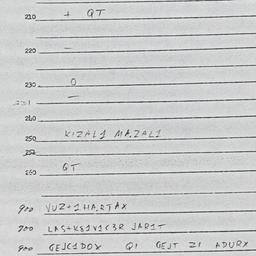 210 + GT
220 —
230 0
231 —
240
250 KIZAL1 MA.ZAL1
252
260 GT
900 VUZ+1 HA,RTAX
900 JAR1T
900 GEJC1DOX Q1 GEJT Z1 ADURX